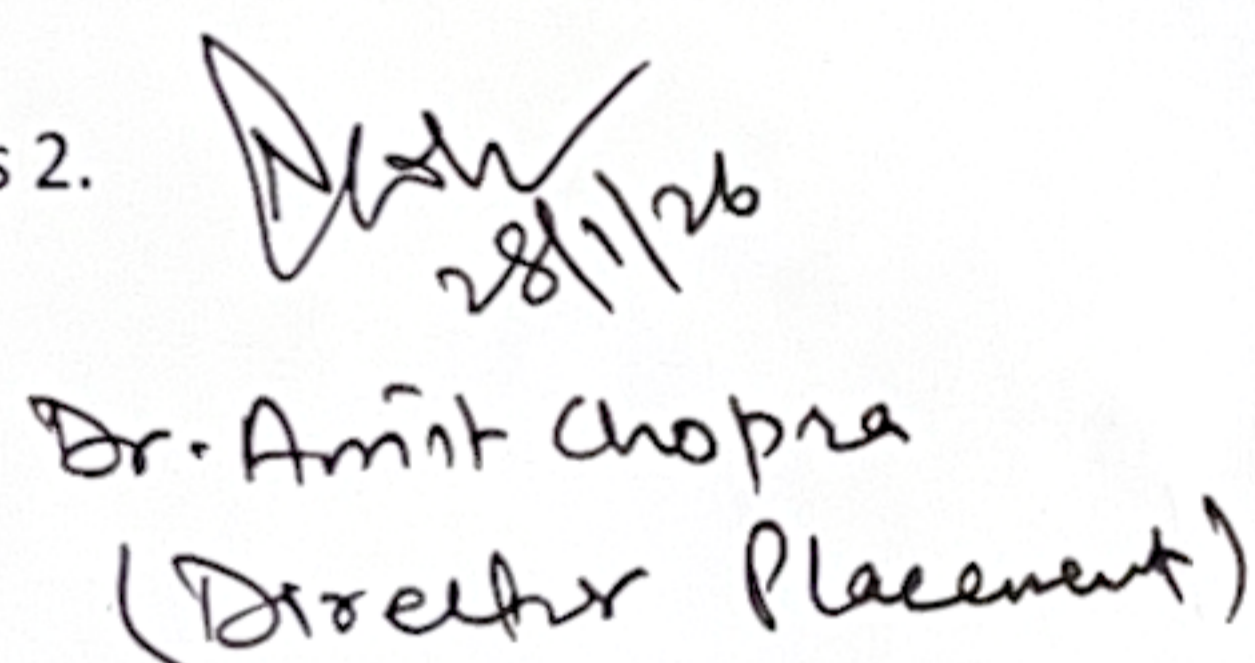 2.
28/1/26
Dr. Amit Chopra
(Director Placement)